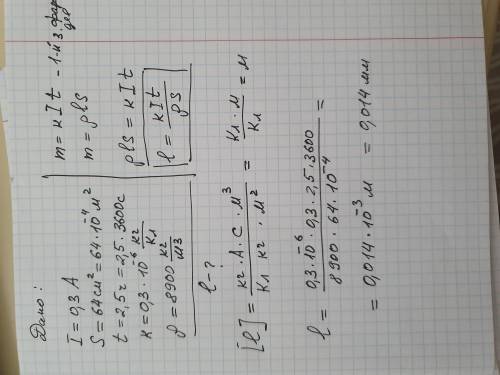 Дано:
I = 0,3 А
S = 64 см² = 64·10⁻⁴ м²
t = 2,5 ч = 2,5·3600 с
к = 0,3·10⁻⁶ кг/Кл
ρ = 8900 кг/м3
l - ?
m = к I t - 1-й з. фарадея
m = ρlS
ρlS = к I t
l = кIt/ρS
[l] = кг·А·с·м³/Кл кг·м² = Кл·м/Кл = м
l = 0,3·10⁻⁶·0,3·2,5·3600/8900·64·10⁻⁴ =
= 0,014·10⁻³ м = 0,014 мм